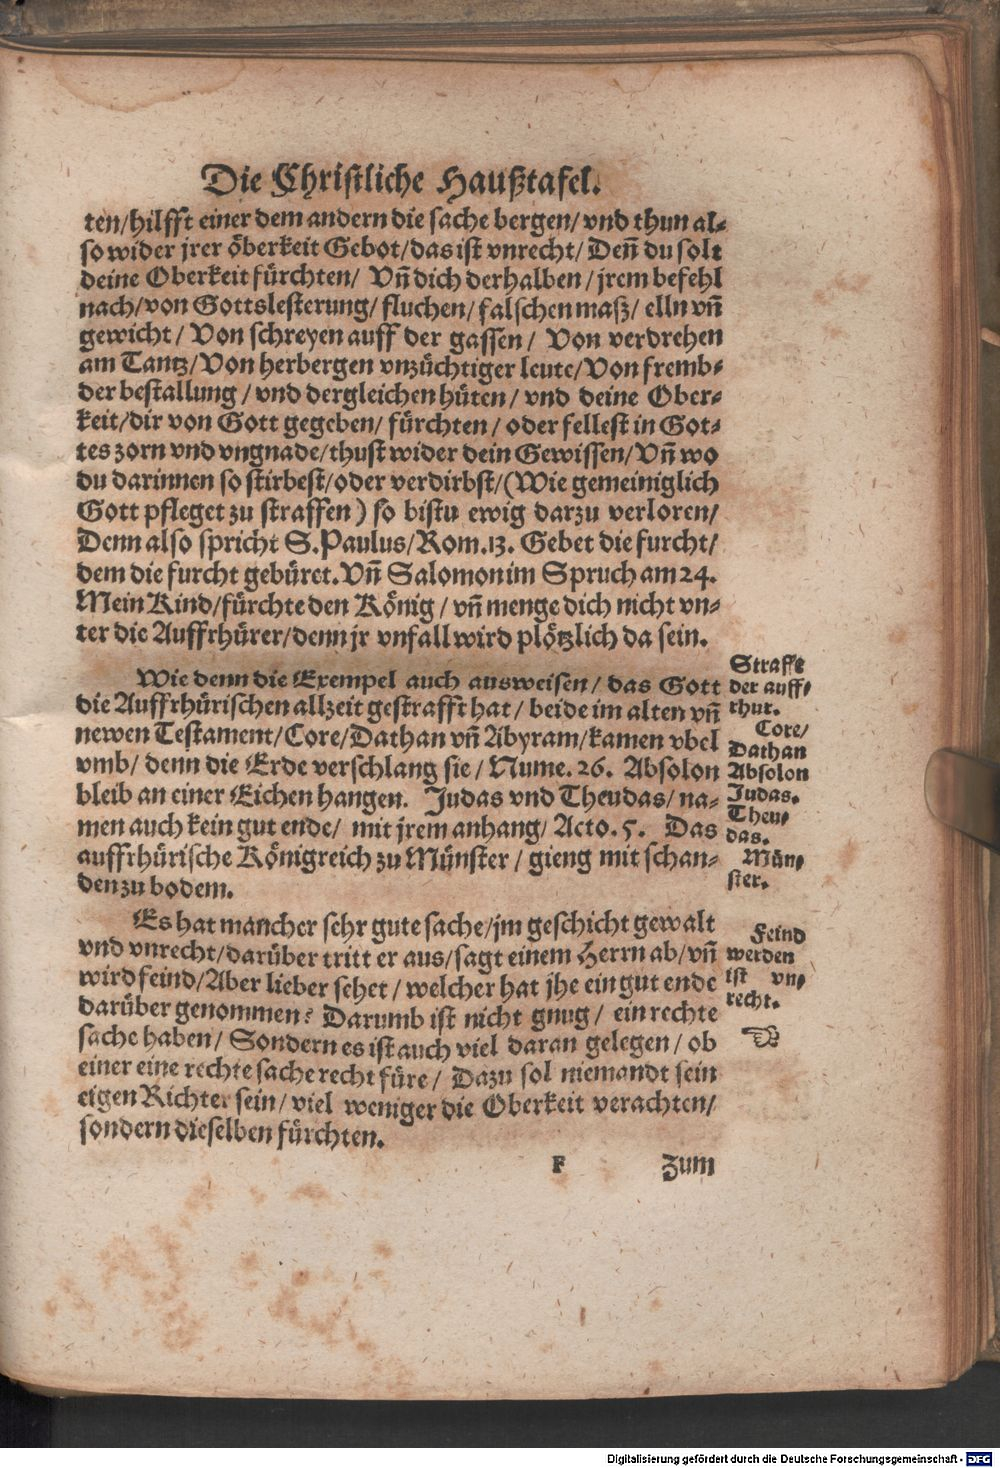 Die Christliche Haußtafel.
ten/hilfft einer dem andern die sache bergen/vnd thun al-
so wider jrer öberkeit Gebot/das ist vnrecht/Deñ du solt
deine Oberkeit fürchten/ Vñ dich derhalben/jrem befehl
nach/von Gottslesterung/fluchen/falschen maß/elln vñ
gewicht/Von schreyen auff der gassen/ Von verdrehen
am Tantz/Von herbergen vnzüchtiger leute/Von fremb-
der bestallung/vnd dergleichen hüten/vnd deine Ober-
keit/dir von Gott gegeben/fürchten/oder fellest in Got-
tes zorn vnd vngnade/thust wider dein Gewissen/Vñ wo
du darinnen so stirbest/oder verdirbst/(Wie gemeiniglich
Gott pfleget zu straffen) so bistu ewig darzu verloren/
Denn also spricht S.Paulus/Rom.13. Gebet die furcht/
dem die furcht gebüret.Vñ Salomon im Spruch am 24.
Mein Kind/fürchte den König/vñ menge dich nicht vn-
ter die Auffrhürer/denn jr vnfall wird plötzlich da sein.
Wie denn die Exempel auch ausweisen/das Gott
die Auffrhürischen allzeit gestrafft hat/beide im alten vñ
newen Testament/Core/Dathan vñ Abyram/kamen vbel
vmb/denn die Erde verschlang sie/Nume.26. Absolon
bleib an einer Eichen hangen. Judas vnd Theudas/na-
men auch kein gut ende/ mit jrem anhang/Acto.5. Das
auffrhürische Königreich zu Münster/gieng mit schan-
den zu bodem.
Straffe
der auff-
rhur.
Core/
Dathan
Absolon
Judas.
Theu-
das.
Mün-
ster.
Es hat mancher sehr gute sache/jm geschicht gewalt
vnd vnrecht/darüber tritt er aus/sagt einem Herrn ab/vñ
wird feind/Aber lieber sehet/welcher hat jhe ein gut ende
darüber genommen? Darumb ist nicht gnug/ ein rechte
sache haben/Sondern es ist auch viel daran gelegen/ob
einer eine rechte sache recht füre/ Dazu sol niemandt sein
eigen Richter sein/viel weniger die Oberkeit verachten/
sondern dieselben fürchten.
Feind
werden
ist vn-
recht.
☜
F zum
Digitalisierung gefördert durch die Deutsche Forschungsgemeinschaft - DFG